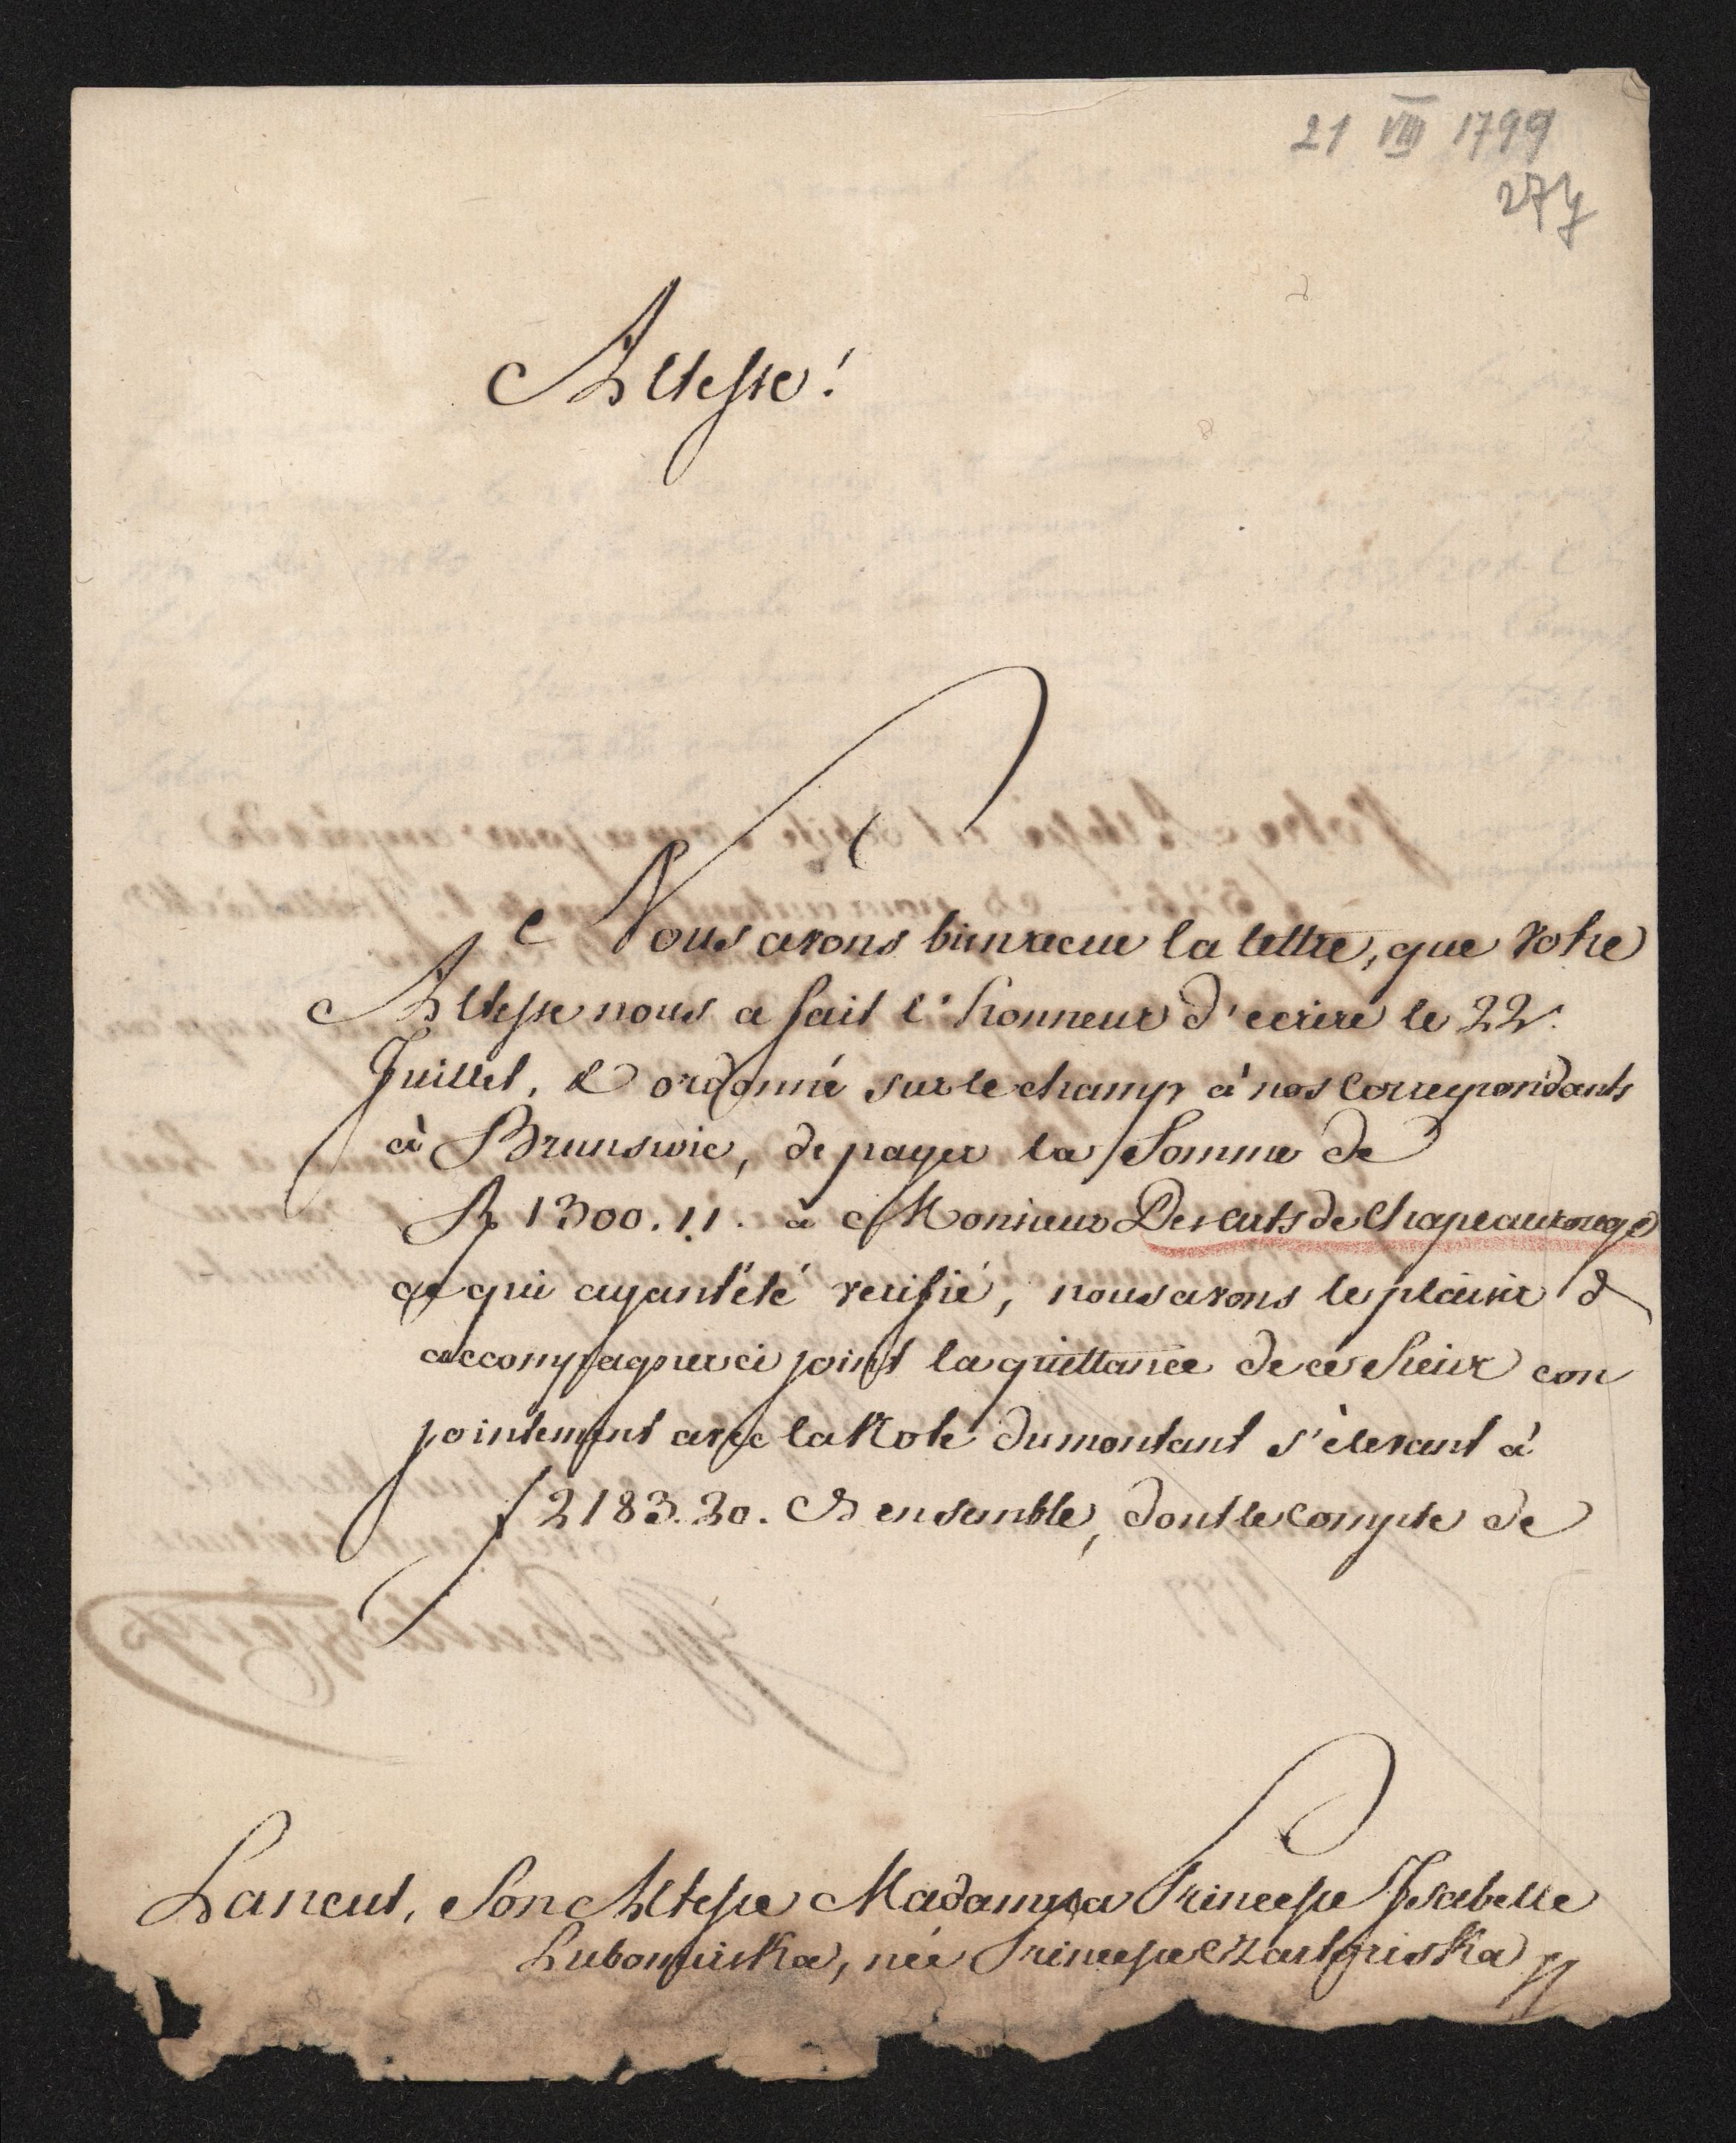 21 VIII 1799
274
Altesse!
Nous avons bien recue la lettre, que Votre
Altesse nous a fait l'honneur d'ecrire le 22.
Juillet, & ordonné sur le champ à nos Correspondants
à Brunswic, de payer la Somme de
1300.,, à Monsieur Descarts de Chapeaurouge
ce qui ayant été verifié, nous avons le plaisir d
accompagner ci joint la quittance de ce Sieur con
jointement avec la Note du montant s'élevant à
f 2183.20. ensemble, dont le Compte de
Lancut, Son Altesse Madame la Princesse Isabelle
Lubomirska, née Princesse Czartoriska